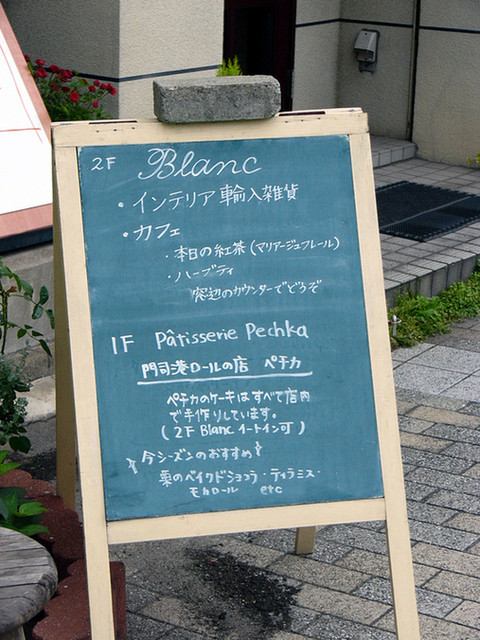 2F Blanc
・インテリア輸入雑貨
・カフェ
・本日の紅茶(マリアージュフレール)
・ハーブティ
窓辺のカウンターでどうぞ
1F Pâtisserie Pechka
門司港ロールの店 ペチカ
ペチカのケーキはすべて店内
で手作りしています。
(2F Blanc イートイン可)
今シーズンのおすすめ
栗のベイクドショコラ・ティラミス・
モカロール etc